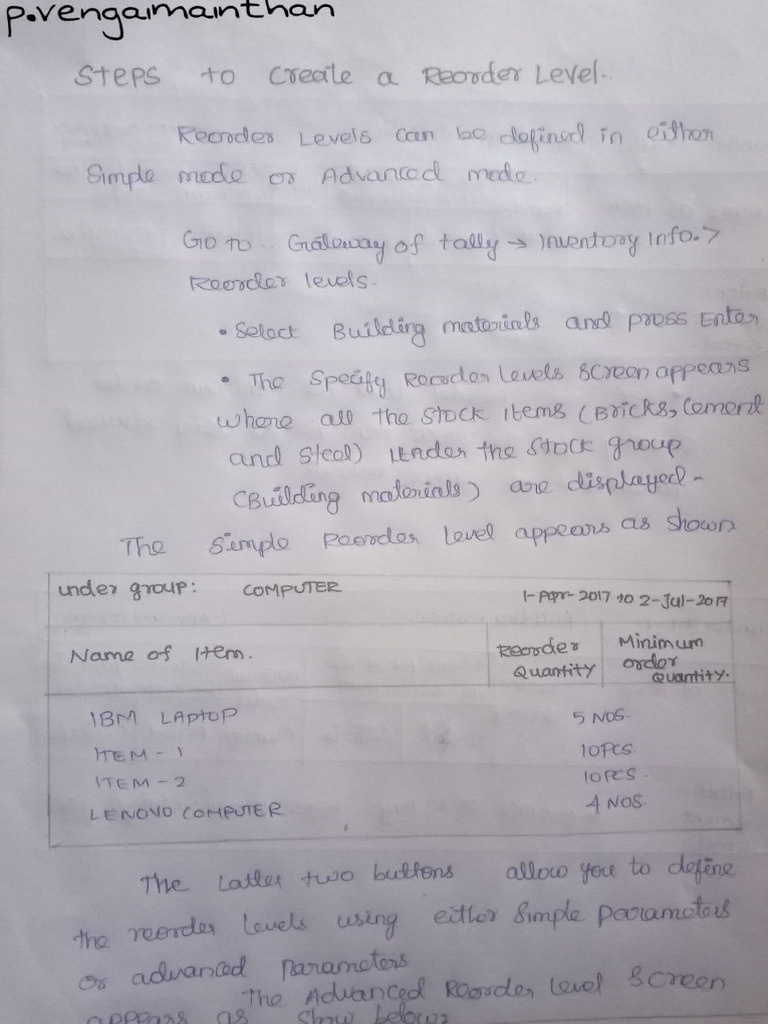 P.vengaimainthan
Steps to Create a Reorder Level.
Reorder Levels can be defined in either
Simple mode or Advanced mode.
Go to.. Gateway of tally → Inventory Info. >
Reorder levels.
• Select Building materials and press Enter
• The Specify Reorder Levels Screen appears
where all the Stock Items (Bricks, Cement
and Steel) Under the Stock group
(Building materials) are displayed.
The Simple Reorder Level appears as shown
under group: COMPUTER 1-Apr-2017 to 2-Jul-2017
Name of Item. Reorder Quantity Minimum order Quantity.
IBM LAPTOP 5 NOS.
ITEM - 1 10 PCS.
ITEM - 2 10 PCS.
LENOVO COMPUTER 4 NOS.
The Latter two buttons allow you to define
the reorder levels using either Simple parameters
or advanced Parameters
The Advanced Reorder Level Screen
appears as Show below: